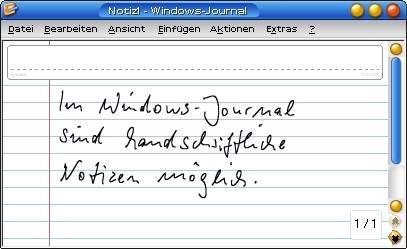 Notiz1 - Windows-Journal
Datei Bearbeiten Ansicht Einfügen Aktionen Extras ?
Im Windows-Journal
sind handschriftliche
Notizen möglich.
1/1